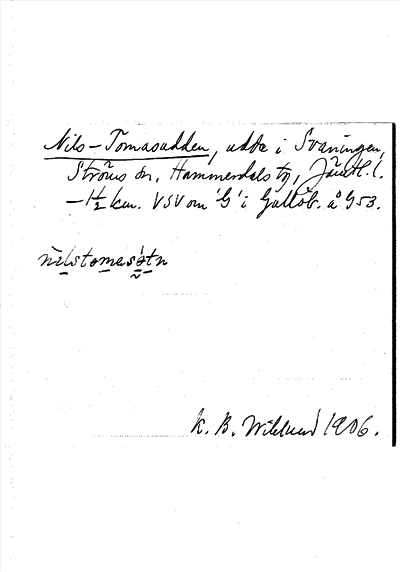 Nils-Tomasudden, udde i Svaningen,
Ströms sn, Hammerdals tg, Jämtl. l.
– 1½ km. VSV om 'G' i Gallöb. å G 53.
K. B. Wiklund 1906.